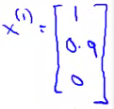 x⁽¹⁾ = [1
0.9
0]